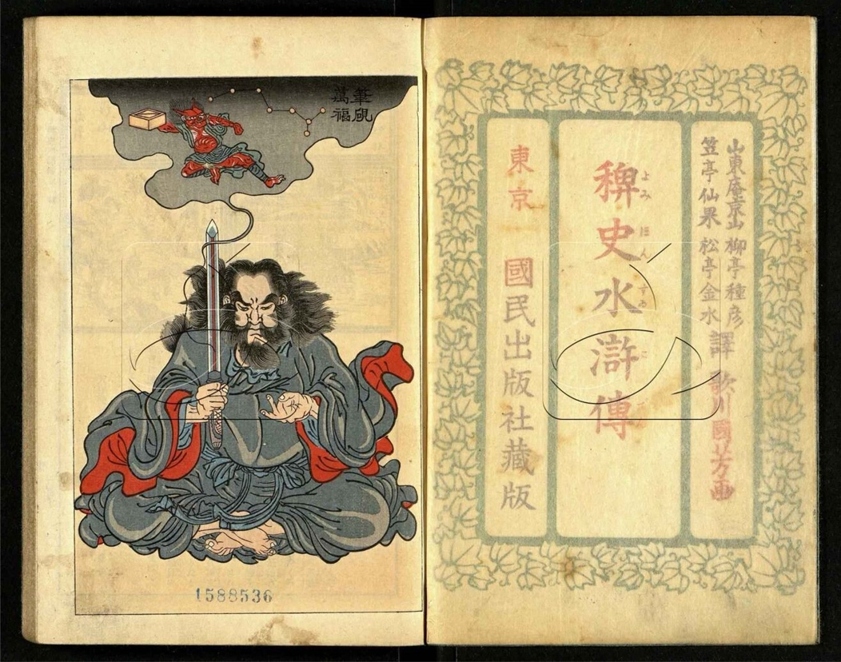 山東庵京山 柳亭種彦
笠亭仙果 松亭金水
譯 歌川國芳画
よみ ほん
稗史水滸傳
東京 國民出版社藏版
筆硯
萬福
1588536